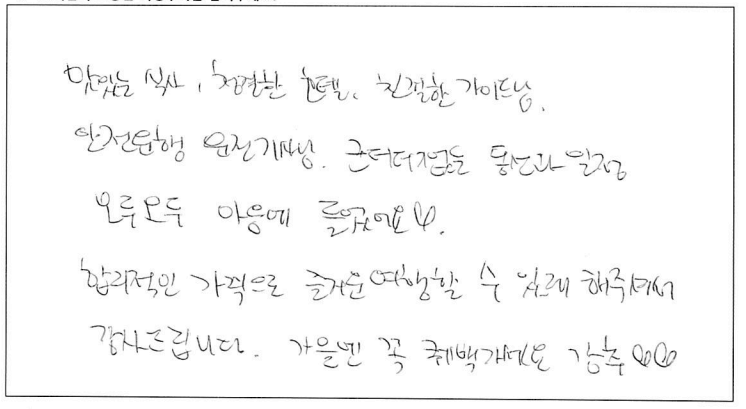 맛있는 식사, 청결한 호텔, 친절한 가이드님.
안전운행 운전기사님. 군더더기없는 동선과 일정
모두모두 마음에 들었어요
합리적인 가격으로 즐거운여행할 수 있게 해주셔서
감사드립니다. 가을엔 꼭 강추